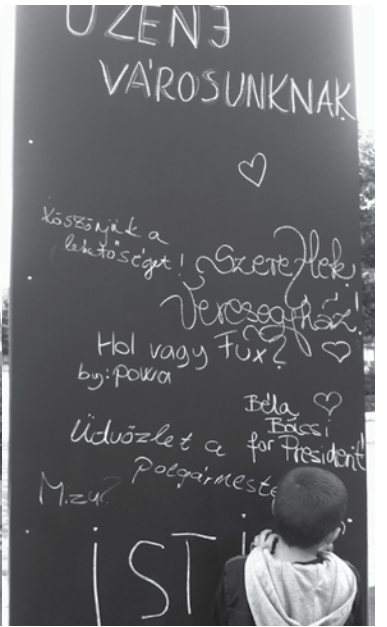 ÜZENJ
VÁROSUNKNAK
Köszönjük a
lehetőséget!
Szeretlek
Veresegyház!
Hol vagy Fux?
by: powa
Béla
Bácsi
for President
Üdvözlet a
Polgármeste
IST